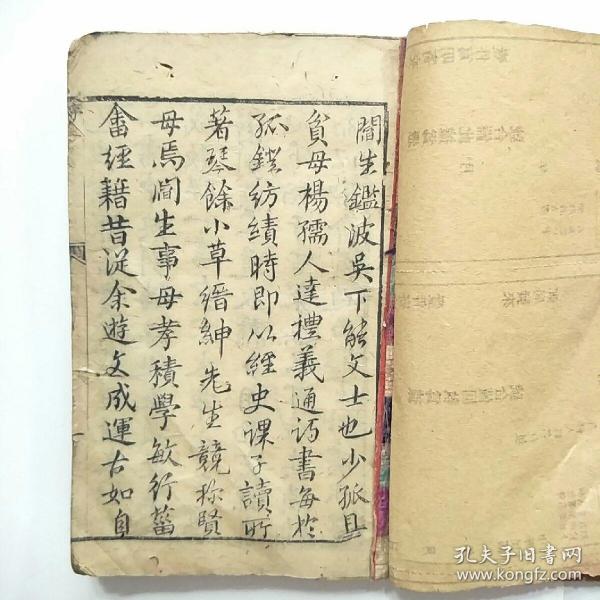 閻生鑑波吳下能文士也少孤且
貧母楊孺人達禮義通詩書每於
孤鐙紡績時即以經史課子讀所
著琴餘小草縉紳先生競称賢
母焉閻生事母孝積學敏行菑
畬經籍昔從余遊文成運古如自
孔夫子旧书网
www.kongfz.com